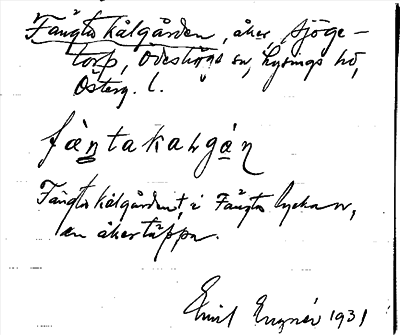 Fångta kålgården, åker Sjöge-
torp, Ödeshögs sn, Lysings hd,
Österg. l.
fàntakaLgáɲ
Fångta kålgården, i Fångta lyckan,
en åkertäppa.
Emil 1931